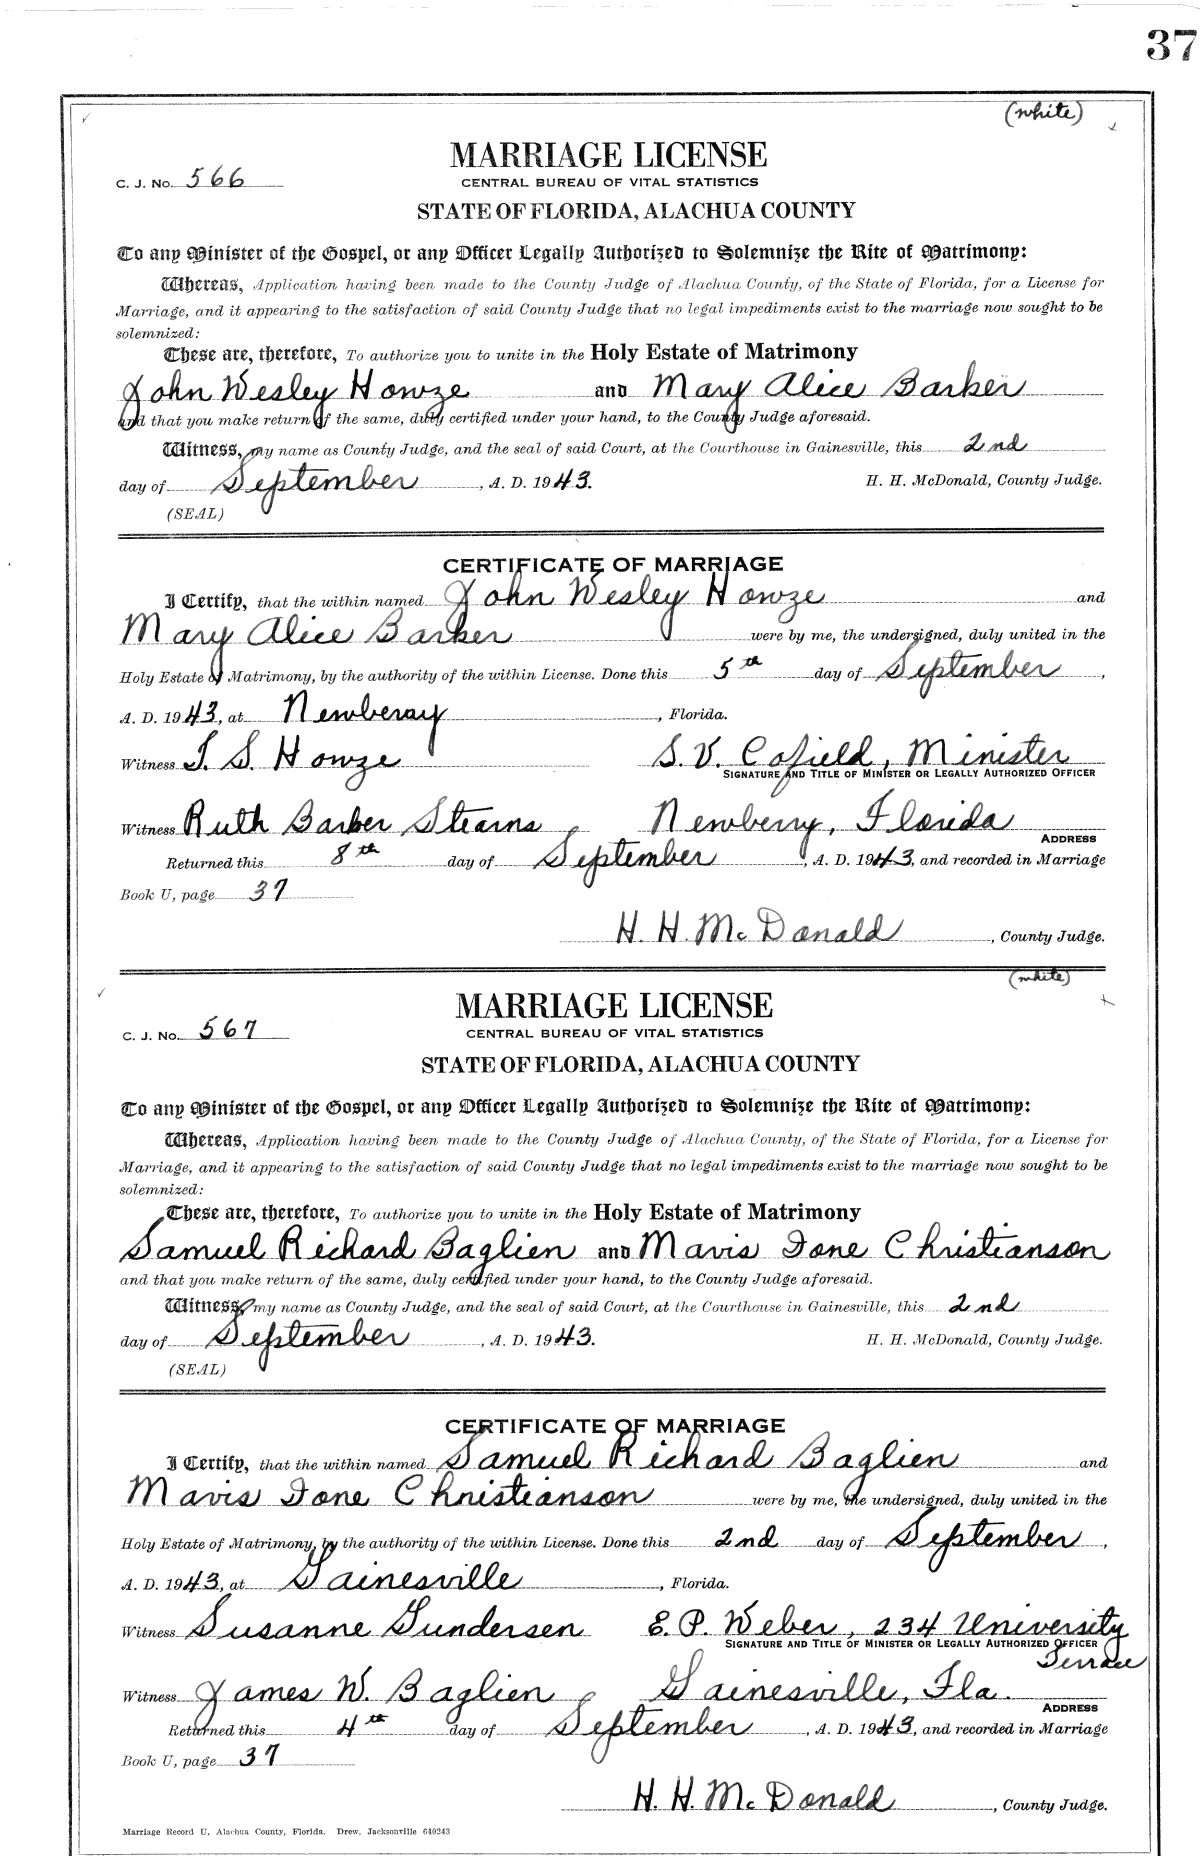 37
(white)
MARRIAGE LICENSE
C. J. No. 566
CENTRAL BUREAU OF VITAL STATISTICS
STATE OF FLORIDA, ALACHUA COUNTY
To any Minister of the Gospel, or any Officer Legally Authorized to Solemnize the Rite of Matrimony:
Whereas, Application having been made to the County Judge of Alachua County, of the State of Florida, for a License for
Marriage, and it appearing to the satisfaction of said County Judge that no legal impediments exist to the marriage now sought to be
solemnized:
These are, therefore, To authorize you to unite in the Holy Estate of Matrimony
John Wesley Howze and Mary Alice Barker
and that you make return of the same, duly certified under your hand, to the County Judge aforesaid.
Witness, my name as County Judge, and the seal of said Court, at the Courthouse in Gainesville, this 2nd
day of September, A. D. 1943. H. H. McDonald, County Judge.
(SEAL)
CERTIFICATE OF MARRIAGE
I Certify, that the within named John Wesley Howze and
Mary Alice Barker were by me, the undersigned, duly united in the
Holy Estate of Matrimony, by the authority of the within License. Done this 5th day of September,
A. D. 1943, at Newberry, Florida.
Witness T. S. Howze S. V. Cofield, Minister
SIGNATURE AND TITLE OF MINISTER OR LEGALLY AUTHORIZED OFFICER
Witness Ruth Barker Stearns Newberry, Florida
ADDRESS
Returned this 8th day of September, A. D. 1943, and recorded in Marriage
Book U, page 37
H. H. McDonald, County Judge.
(white)
MARRIAGE LICENSE
C. J. No. 567
CENTRAL BUREAU OF VITAL STATISTICS
STATE OF FLORIDA, ALACHUA COUNTY
To any Minister of the Gospel, or any Officer Legally Authorized to Solemnize the Rite of Matrimony:
Whereas, Application having been made to the County Judge of Alachua County, of the State of Florida, for a License for
Marriage, and it appearing to the satisfaction of said County Judge that no legal impediments exist to the marriage now sought to be
solemnized:
These are, therefore, To authorize you to unite in the Holy Estate of Matrimony
Samuel Richard Baglien and Mavis Ione Christianson
and that you make return of the same, duly certified under your hand, to the County Judge aforesaid.
Witness, my name as County Judge, and the seal of said Court, at the Courthouse in Gainesville, this 2nd
day of September, A. D. 1943. H. H. McDonald, County Judge.
(SEAL)
CERTIFICATE OF MARRIAGE
I Certify, that the within named Samuel Richard Baglien and
Mavis Ione Christianson were by me, the undersigned, duly united in the
Holy Estate of Matrimony, by the authority of the within License. Done this 2nd day of September,
A. D. 1943, at Gainesville, Florida.
Witness Susanne Gundersen E. P. Weber, 234 University
SIGNATURE AND TITLE OF MINISTER OR LEGALLY AUTHORIZED OFFICER
Terrace
Witness James W. Baglien Gainesville, Fla.
ADDRESS
Returned this 4th day of September, A. D. 1943, and recorded in Marriage
Book U, page 37
H. H. McDonald, County Judge.
Marriage Record U, Alachua County, Florida. Drew, Jacksonville 640243